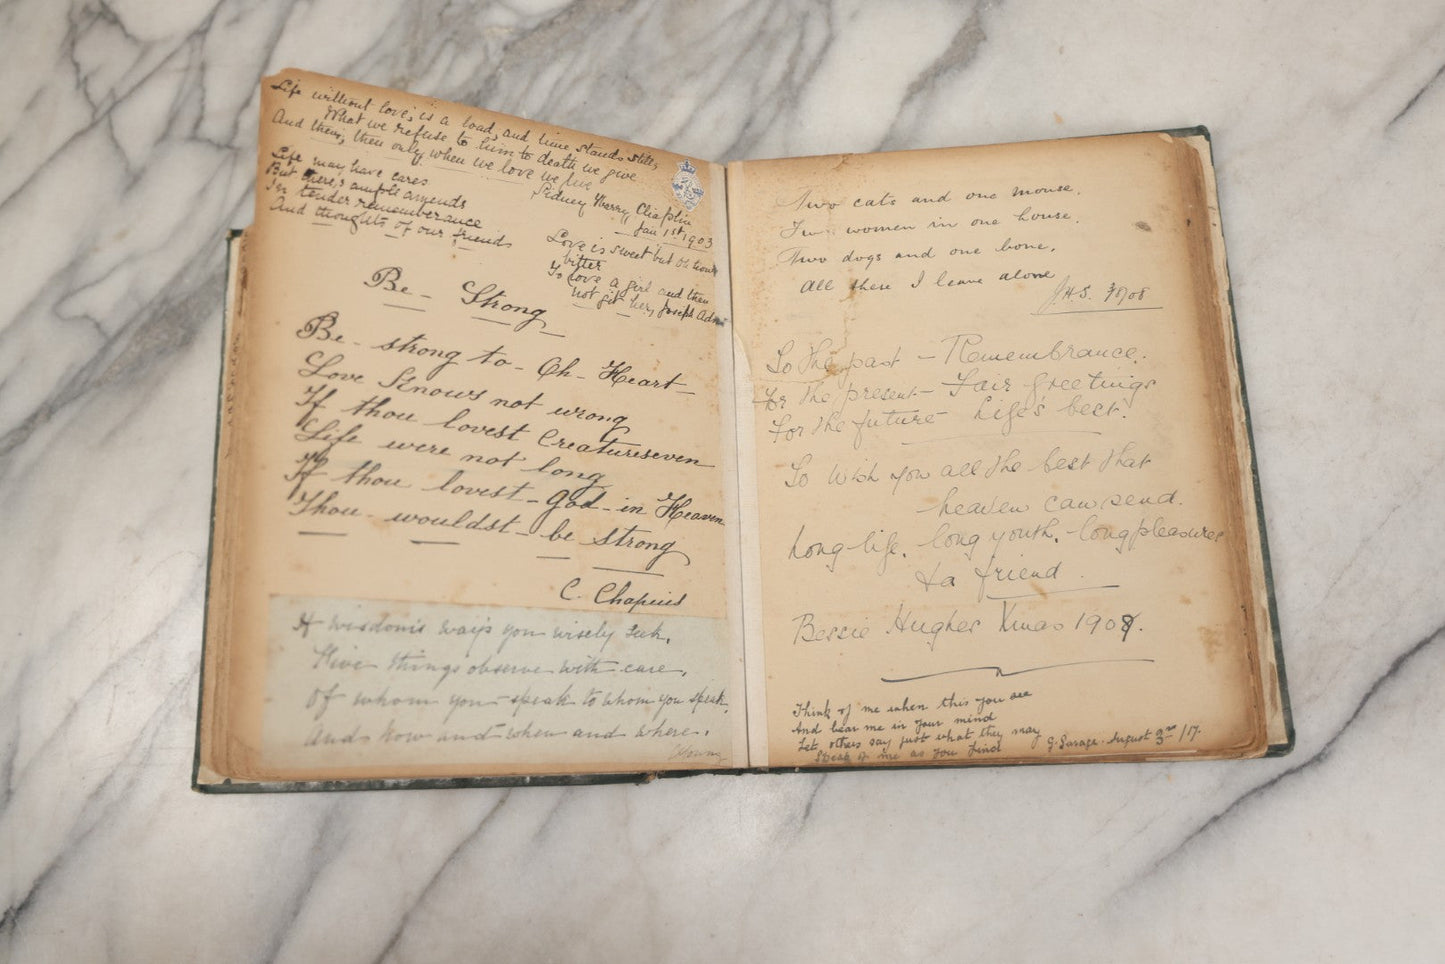 Life without love, is a load, and time stands still,
What we refuse to him to death we give
And then, then only when we love we live
Sidney Harry Chaplin
Jan 1st 1903
Life may have cares
But there's ample amends
In tender rememberance
And thoughts of our friends
Love is sweet but oh how
bitter
To love a girl and then
not git her, Joseph
Be - Strong
Be - strong to - Oh - Heart
Love Knows not wrong
If thou lovest Creatures even
Life were not long
If thou lovest - God - in Heaven
Thou - wouldst - be strong
C.
If wisdom's ways you wisely seek,
Five things observe with care,
Of whom you speak to whom you speak,
And how and when and where.
Two cats and one mouse.
Two women in one house.
Two dogs and one bone,
All these I leave alone
J.H.S.
To the past - Remembrance.
For the present - Fair greetings
For the future - Life's best.
To wish you all the best that
heaven can send.
Long life, long youth, long pleasures
& a friend.
Bessie Hughes Xmas 1908.
Think of me when this you see
And bear me in your mind
Let others say just what they may
Speak of me as you find
G. Savage. August 3rd /17.